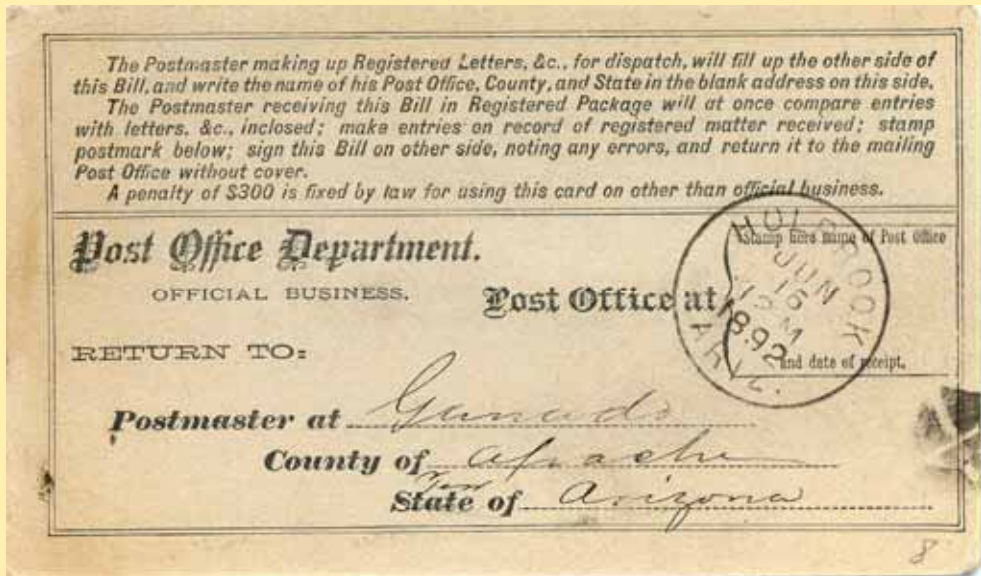 The Postmaster making up Registered Letters, &c., for dispatch, will fill up the other side of
this Bill, and write the name of his Post Office, County, and State in the blank address on this side.
The Postmaster receiving this Bill in Registered Package will at once compare entries
with letters, &c., inclosed; make entries on record of registered matter received; stamp
postmark below; sign this Bill on other side, noting any errors, and return it to the mailing
Post Office without cover.
A penalty of $300 is fixed by law for using this card on other than official business.
Post Office Department.
OFFICIAL BUSINESS.
Post Office at
Stamp here name of Post Office
and date of receipt.
HOLBROOK
JUN
16
M
1892
ARIZ.
RETURN TO:
Postmaster at Ganado
County of Apache
Terr
State of Arizona
8